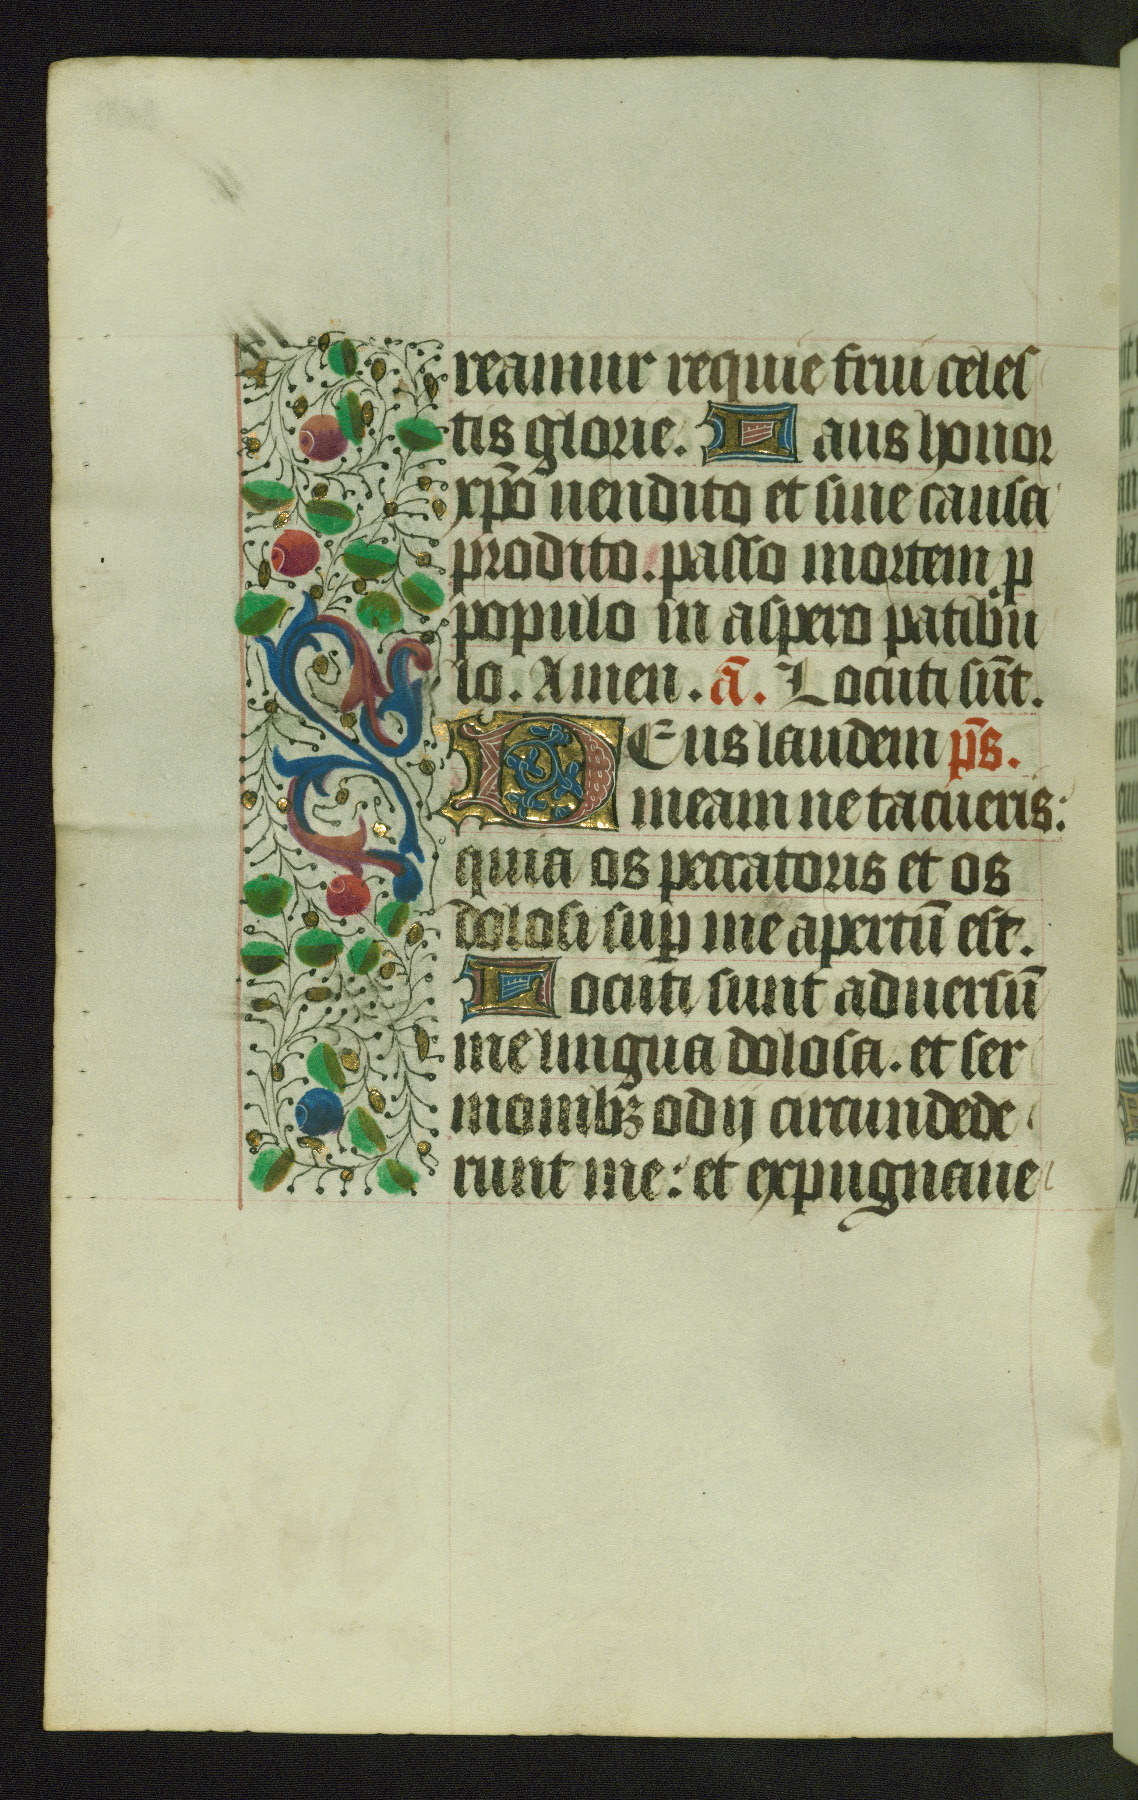 reamur requie frui celes
tis glorie. Laus honor
xp̄o uendito et sine causa
prodito. passo mortem ꝓ
populo in aspero patibu
lo. Amen. an̄. Locuti sūt.
DEus laudem p̄s.
meam ne tacueris:
quia os peccatoris et os
dolosi suꝑ me apertū est.
Locuti sunt aduersū
me lingua dolosa. et ser
monibꝫ odij circundede
runt me: et expugnaue